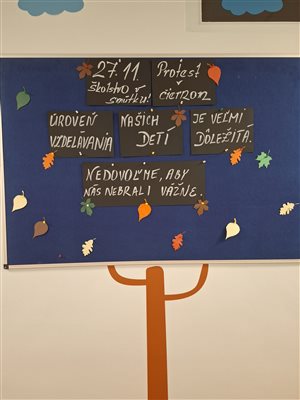 27.11.
školstvo
v smútku!
Protest
čiernou
ÚROVEŇ
VZDELÁVANIA
NAŠICH
DETÍ
JE VEĽMI
DÔLEŽITÁ.
NEDOVOĽME, ABY
NÁS NEBRALI VÁŽNE.